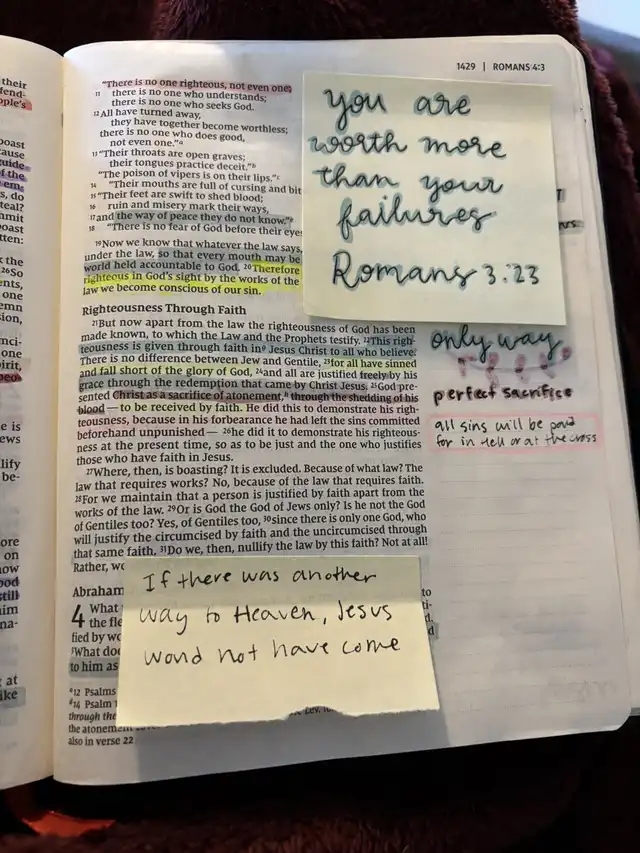 their
fend-
ople's
oast
ause
uide-
of the
em-
s, do
teal?
mmit
boast
tten:
k the
26So
ents,
one
emn
sion,
mci-
one
irit,
peo
e is
ews
lify
be-
ore
on
ow
ood
still
im
na-
at
ike
1429 | ROMANS 4:3
"There is no one righteous, not even one;
11 there is no one who understands;
there is no one who seeks God.
12 All have turned away,
they have together become worthless;
there is no one who does good,
not even one."a
13 "Their throats are open graves;
their tongues practice deceit."b
"The poison of vipers is on their lips."c
14 "Their mouths are full of cursing and bit
15 "Their feet are swift to shed blood;
16 ruin and misery mark their ways,
17 and the way of peace they do not know."e
18 "There is no fear of God before their eyes
19Now we know that whatever the law says,
under the law, so that every mouth may be
world held accountable to God. 20Therefore
righteous in God's sight by the works of the
law we become conscious of our sin.
Righteousness Through Faith
21But now apart from the law the righteousness of God has been
made known, to which the Law and the Prophets testify. 22This righ-
teousness is given through faith ing Jesus Christ to all who believe.
There is no difference between Jew and Gentile, 23for all have sinned
and fall short of the glory of God, 24and all are justified freely by his
grace through the redemption that came by Christ Jesus. 25God pre-
sented Christ as a sacrifice of atonement,h through the shedding of his
blood — to be received by faith. He did this to demonstrate his righ-
teousness, because in his forbearance he had left the sins committed
beforehand unpunished — 26he did it to demonstrate his righteous-
ness at the present time, so as to be just and the one who justifies
those who have faith in Jesus.
27Where, then, is boasting? It is excluded. Because of what law? The
law that requires works? No, because of the law that requires faith.
28For we maintain that a person is justified by faith apart from the
works of the law. 29Or is God the God of Jews only? Is he not the God
of Gentiles too? Yes, of Gentiles too, 30since there is only one God, who
will justify the circumcised by faith and the uncircumcised through
that same faith. 31Do we, then, nullify the law by this faith? Not at all!
Rather, we
Abraham
4 What
the fle
fied by wo
3What doe
to him as
to
ti-
d
a12 Psalms
d14 Psalm
through the
Lev.
the atonement
also in verse 22
you are
worth more
than your
failures
Romans 3:23
only way
perfect sacrifice
all sins will be paid
for in Hell or at the cross
If there was another
way to Heaven, Jesus
would not have come